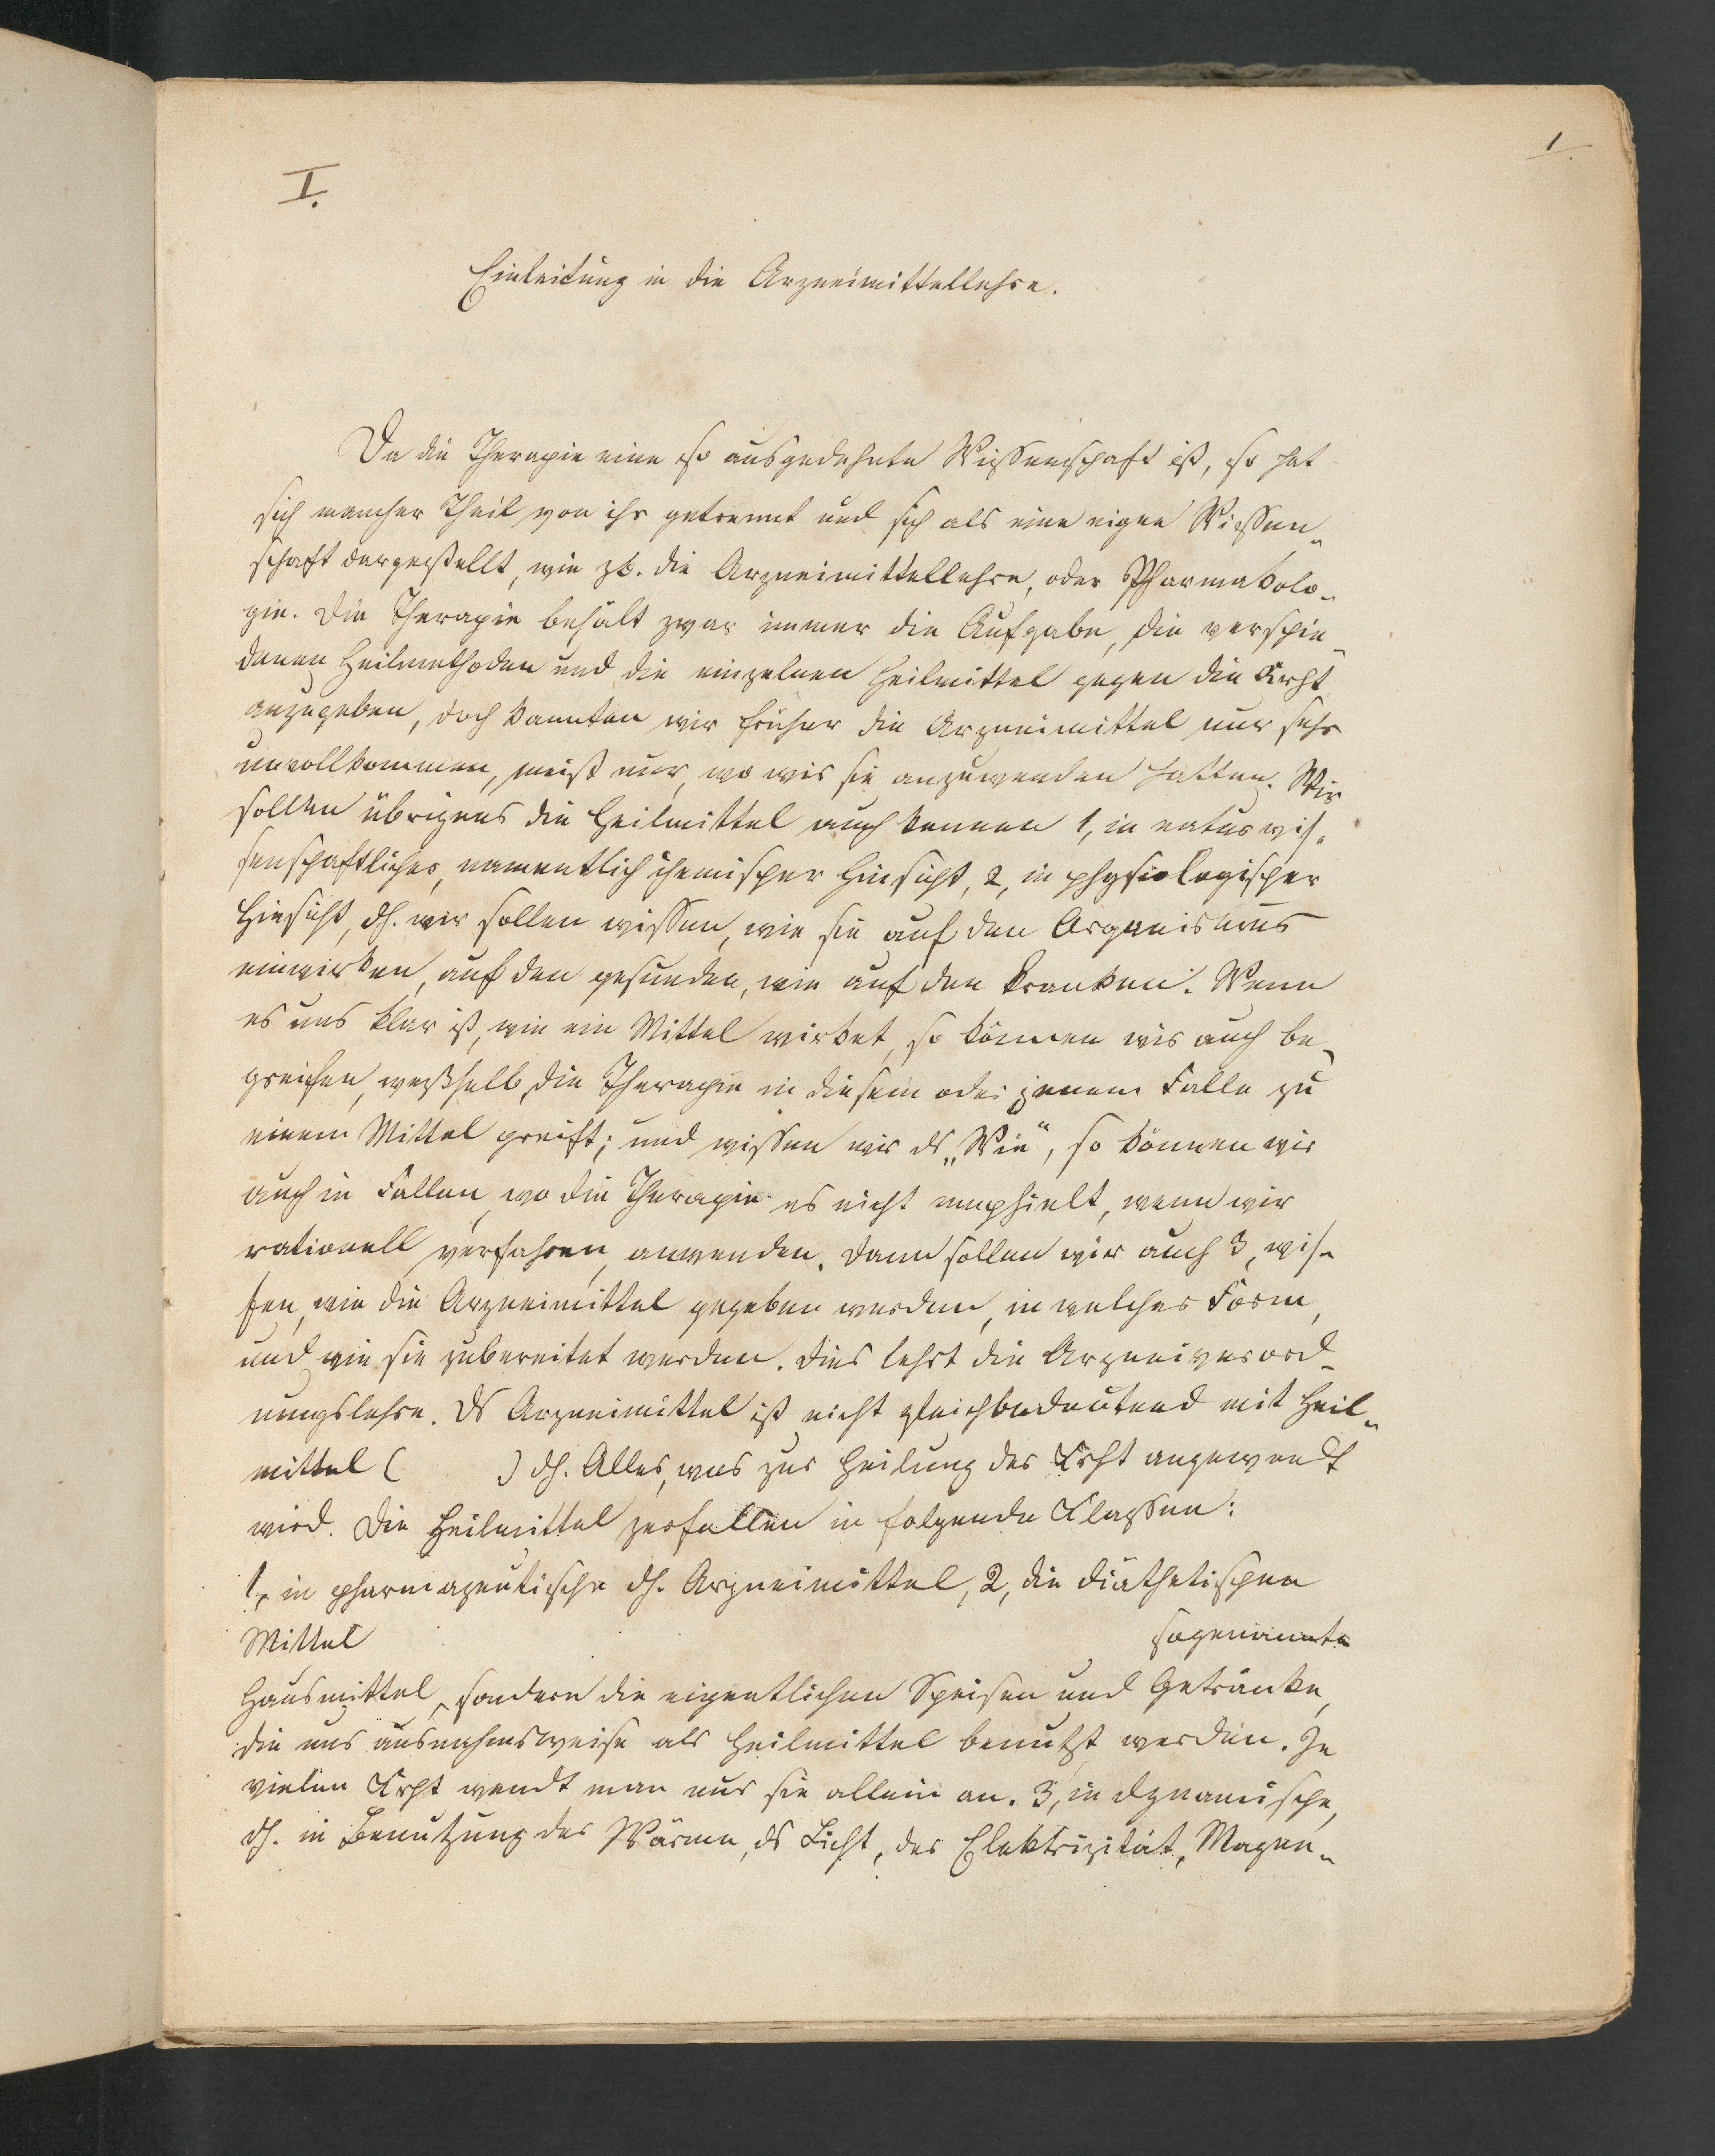 1.
I.
Einleitung in die Arzneimittellehre.
Da die Therapie eine so ausgedehnte Wissenschaft ist, so hat
sich mancher Theil von ihr getrennt und sich als eine eigne Wissen„
schaft dargestellt, wie zb. die Arzneimittellehre, oder Pharmakolo„
gie. Die Therapie behält zwar immer die Aufgabe, die verschie„
denen Heilmethoden und die einzelnen Heilmittel gegen die Krht
anzugeben, doch kannten wir früher die Arzneimittel nur sehr
unvollkommen, meist nur, wo wir sie anzuwenden hatten. Wir
sollen übrigens die Heilmittel auch kennen 1, in naturwis„
senschaftlicher, namentlich chemischer Hinsicht, 2, in physiologischer
Hinsicht, dh. wir sollen wissen, wie sie auf den Organismus
einwirken, auf den gesunden, wie auf den kranken. Wenn
es uns klar ist, wie ein Mittel wirket, so können wir auch be„
greifen, weßhalb die Therapie in diesem oder jenem Falle zu
einem Mittel greift; und wissen wir ds „Wie", so können wir
auch in Fällen, wo die Therapie es nicht emphielt, wenn wir
rationell verfahren, anwenden. Dann sollen wir auch 3, wis„
sen, wie die Arzneimittel gegeben werden, in welcher Form,
und wie sie zubereitet werden. Dies lehrt die Arzneiverord„
nungslehre. Ds Arzneimittel ist nicht gleichbedeutend mit Heil„
mittel ( ) dh. Alles, was zur Heilung der Krht angewendt
wird. Die Heilmittel zerfallen in folgende Klassen:
1, in pharmazeutische dh. Arzneimittel, 2, die diäthetischen
Mittel sogenannte
Hausmittel, sondern die eigentlichen Speisen und Getränke,
die nur ausnahmsweise als Heilmittel benutzt werden. In
vielen Krht wendt man nur sie allein an. 3, in dynamische,
dh. in Benutzung der Wärme, ds Licht, der Elektrizität, Magen„